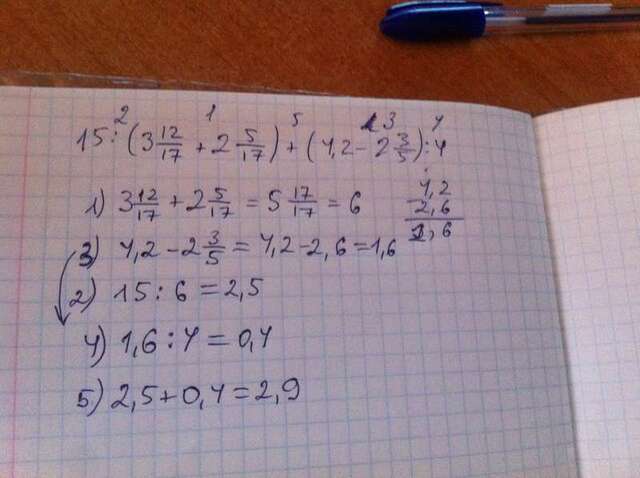 2 1 5 3 4
15 : (3 12/17 + 2 5/17) + (4,2 - 2 3/5) : 4
1) 3 12/17 + 2 5/17 = 5 17/17 = 6
4,2
2,6
1,6
3) 4,2 - 2 3/5 = 4,2 - 2,6 = 1,6
2) 15 : 6 = 2,5
4) 1,6 : 4 = 0,4
5) 2,5 + 0,4 = 2,9